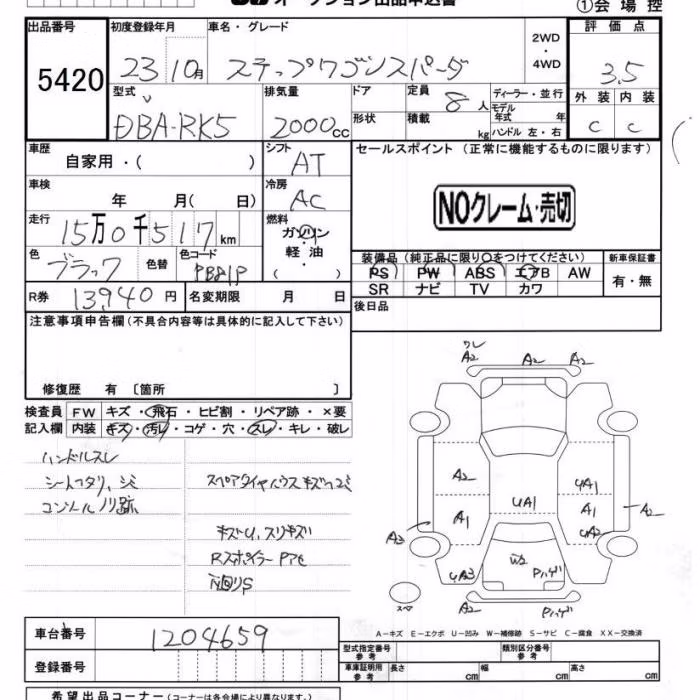 オークション出品申込書
①会場控
出品番号 初度登録年月 車名・グレード 2WD ・ 4WD 評価点
5420 23 10月 ステップワゴンスパーダ 3.5
型式 排気量 ドア 定員 8人 ディーラー・並行 外装 内装
DBA-RK5 2000cc 形状 積載 kg モデル年式 年 C C
ハンドル 左・右
車歴 自家用・( ) シフト AT セールスポイント (正常に機能するものに限ります)
車検 年 月( 日) 冷房 AC
NOクレーム・売切
走行 15万0千517km 燃料 ガソリン
軽油
( )
色 ブラック 色替 色コード PB81P
装備品 (純正品に限り○をつけてください) 新車保証書
PS PW ABS エアB AW 有・無
SR ナビ TV カワ
R券 13940円 名変期限 月 日 後日品
注意事項申告欄 (不具合内容等は具体的に記入して下さい)
修復歴 有 〔箇所 〕
検査員 FW キズ・飛石・ヒビ割・リペア跡・×要
記入欄 内装 キズ・汚レ・コゲ・穴・スレ・キレ・破レ
ハンドルスレ
シートヘタリ、シミ スペアタイヤハウスキズヘコミ
コンソールノリ跡
キズU、スリキズ
Rスポイラー Pアセ
P
ワレ
A2 A2 A2
A2 UA1 UA1
A1 A1 A2
A2 UA2
UA3 W2 Pハゲ
スペア A2 Pハゲ
A-キズ E-エクボ U-凹み W-補修跡 S-サビ C-腐食 XX-交換済
車台番号 1204659
型式指定番号 参考 類別区分番号 参考
登録番号 車庫証明用 参考 長さ cm 幅 cm 高さ cm
希望出品コーナー (コーナーは各会場により異なります。)